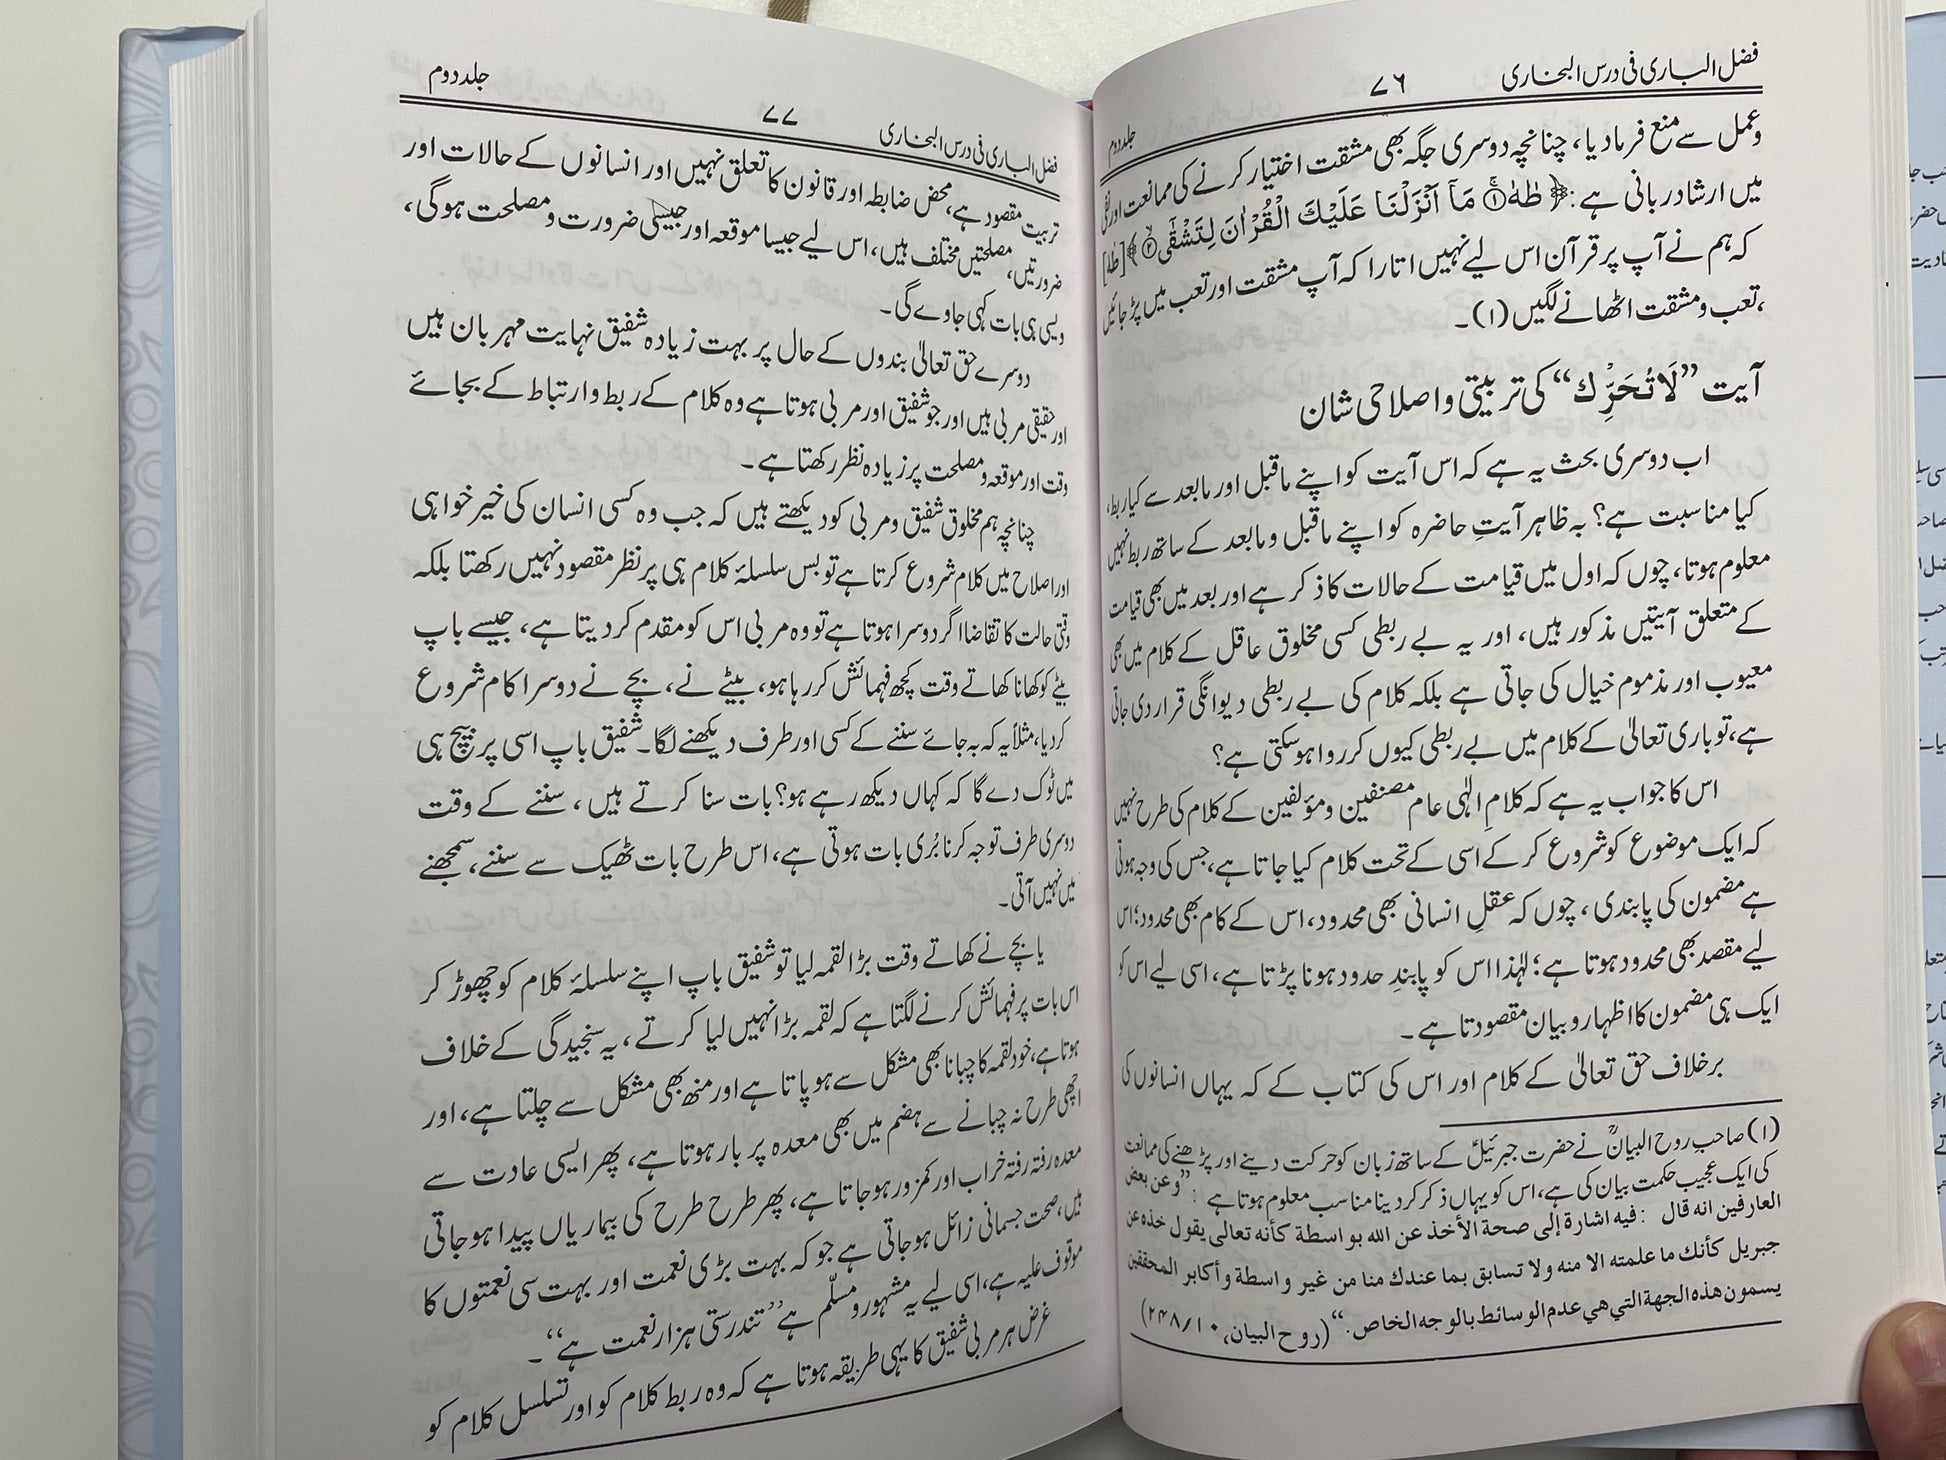 فضل الباری فی درس البخاری
۷۶
جلد دوم
وعمل سے منع فرمادیا، چنانچہ دوسری جگہ بھی مشقت اختیار کرنے کی ممانعت اور نفی
میں ارشاد ربانی ہے: ﴿طٰهٰ۝۱ مَآ اَنْزَلْنَا عَلَيْكَ الْقُرْاٰنَ لِتَشْقٰٓى۝۲﴾[طٰہٰ]
کہ ہم نے آپ پر قرآن اس لیے نہیں اتارا کہ آپ مشقت اور تعب میں پڑجائیں
،تعب ومشقت اٹھانے لگیں (۱)۔
آیت ”لَا تُحَرِّكْ“ کی تربیتی واصلاحی شان
اب دوسری بحث یہ ہے کہ اس آیت کو اپنے ماقبل اور مابعد سے کیا ربط،
کیا مناسبت ہے؟ بہ ظاہر آیتِ حاضرہ کو اپنے ماقبل ومابعد کے ساتھ ربط نہیں
معلوم ہوتا، چوں کہ اول میں قیامت کے حالات کا ذکر ہے اور بعد میں بھی قیامت
کے متعلق آیتیں مذکور ہیں، اور یہ بے ربطی کسی مخلوق عاقل کے کلام میں بھی
معیوب اور مذموم خیال کی جاتی ہے بلکہ کلام کی بے ربطی دیوانگی قرار دی جاتی
ہے، تو باری تعالیٰ کے کلام میں بے ربطی کیوں کر روا ہوسکتی ہے؟
اس کا جواب یہ ہے کہ کلامِ الٰہی عام مصنفین ومؤلفین کے کلام کی طرح نہیں
کہ ایک موضوع کو شروع کرکے اسی کے تحت کلام کیا جاتا ہے، جس کی وجہ ہوتی
ہے مضمون کی پابندی، چوں کہ عقلِ انسانی بھی محدود، اس کے کام بھی محدود؛ اس
لیے مقصد بھی محدود ہوتا ہے؛ لہٰذا اس کو پابندِ حدود ہونا پڑتا ہے، اسی لیے اس کو
ایک ہی مضمون کا اظہار و بیان مقصود تا ہے۔
برخلاف حق تعالیٰ کے کلام اور اس کی کتاب کے کہ یہاں انسانوں کی
(۱) صاحبِ روح البیانؒ نے حضرت جبرئیلؑ کے ساتھ زبان کو حرکت دینے اور پڑھنے کی ممانعت
کی ایک عجیب حکمت بیان کی ہے، اس کو یہاں ذکر کردینا مناسب معلوم ہوتا ہے : ”وعن بعض
العارفين انه قال : فيه اشارة إلى صحة الأخذ عن الله بواسطة كأنه تعالى يقول خذه عن
جبريل كأنك ما علمته الا منه ولا تسابق بما عندك منا من غير واسطة وأكابر المحققين
يسمون هذه الجهة التي هي عدم الوسائط بالوجه الخاص.“ (روح البیان، ۱۰/۲۴۸)
فضل الباری فی درس البخاری
۷۷
جلد دوم
تربیت مقصود ہے، محض ضابطہ اور قانون کا تعلق نہیں اور انسانوں کے حالات اور
ضرورتیں، مصلحتیں مختلف ہیں، اس لیے جیسا موقعہ اور جیسی ضرورت و مصلحت ہوگی،
ویسی ہی بات کہی جاوے گی۔
دوسرے حق تعالیٰ بندوں کے حال پر بہت زیادہ شفیق نہایت مہربان ہیں
اور حقیقی مربی ہیں اور جو شفیق اور مربی ہوتا ہے وہ کلام کے ربط وارتباط کے بجائے
وقت اور موقعہ و مصلحت پر زیادہ نظر رکھتا ہے۔
چنانچہ ہم مخلوق شفیق ومربی کو دیکھتے ہیں کہ جب وہ کسی انسان کی خیرخواہی
اور اصلاح میں کلام شروع کرتا ہے تو بس سلسلۂ کلام ہی پر نظر مقصود نہیں رکھتا بلکہ
وقتی حالت کا تقاضا اگر دوسرا ہوتا ہے تو وہ مربی اس کو مقدم کردیتا ہے، جیسے باپ
بیٹے کو کھانا کھاتے وقت کچھ فہمائش کر رہا ہو، بیٹے نے، بچے نے دوسرا کام شروع
کردیا، مثلاً یہ کہ بہ جائے سننے کے کسی اور طرف دیکھنے لگا۔ شفیق باپ اسی پر بیچ ہی
میں ٹوک دے گا کہ کہاں دیکھ رہے ہو؟ بات سنا کرتے ہیں، سننے کے وقت
دوسری طرف توجہ کرنا بُری بات ہوتی ہے، اس طرح بات ٹھیک سے سننے، سمجھنے
میں نہیں آتی۔
یا بچے نے کھاتے وقت بڑا لقمہ لیا تو شفیق باپ اپنے سلسلۂ کلام کو چھوڑ کر
اس بات پر فہمائش کرنے لگتا ہے کہ لقمہ بڑا نہیں لیا کرتے، یہ سنجیدگی کے خلاف
ہوتا ہے، خود لقمہ کا چبانا بھی مشکل سے ہو پاتا ہے اور منھ بھی مشکل سے چلتا ہے، اور
اچھی طرح نہ چبانے سے ہضم میں بھی معدہ پر بار ہوتا ہے، پھر ایسی عادت سے
معدہ رفتہ رفتہ خراب اور کمزور ہوجاتا ہے، پھر طرح طرح کی بیماریاں پیدا ہوجاتی
ہیں، صحت جسمانی زائل ہوجاتی ہے جو کہ بہت بڑی نعمت اور بہت سی نعمتوں کا
موقوف علیہ ہے، اسی لیے یہ مشہور و مسلّم ہے ”تندرستی ہزار نعمت ہے“۔
غرض ہر مربی شفیق کا یہی طریقہ ہوتا ہے کہ وہ ربط کلام کو اور تسلسل کلام کو